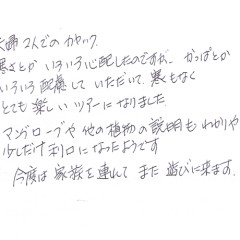 夫婦2人でのカヤック
寒さとか いろいろ心配したのですが、かっぱとか
いろいろ配慮して いただいて、寒もなく
とても楽しいツアーになりました
マングローブや他の植物の説明もわかりや
少しだけ利口になったようです
今度は家族を連れて また遊びに来ます。